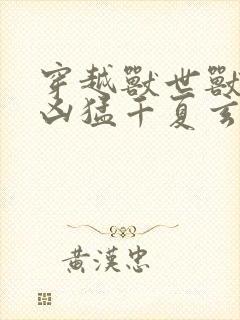 穿越獸世獸
凶猛干夏玄
黃漢忠